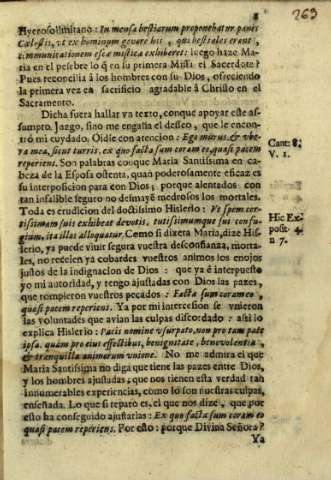 263
Hyerosolimitano: In mensa bestiarum proponebatur panis
Cælestis, vt ex hominum genere hii, qui bestiales erant,
communicationem escæ misticæ exhiberet: luego haze Maria
en el pesebre lo q̃ en su primera Missa el Sacerdote?
Pues reconcilia á los hombres con su Dios, ofreciendo
la primera vez en sacrificio agradable á Christo en el
Sacramento.
Dicha fuera hallar vn texto, conque apoyar este assumpto.
Iuzgo, sino me engaña el desseo, que le encontró
mi cuydado. Oidle con atencion: Ego murus & vbera
mea, sicut turris. ex quo facta sum coram eo quasi pacem
reperiens. Son palabras conque Maria Santissima en cabeza
de la Esposa ostenta, quan poderosamente eficaz es
su interposicion para con Dios; porque alentados con
tan infalible seguro no desmaye medrosos los mortales.
Toda es erudicion del doctissimo Hislerio: Ve spem certissimam
suis exhibeat devotis, tutissimumque sui confugium,
ita illas alloquatur. Como si dixera Maria, dize Hislerio,
ya puede vivir segura vuestra desconfianza, mortales,
no recelen ya cobardes vuestros animos los enojos
justos de la indignacion de Dios: que ya é interpuesto
yo mi autoridad, y tengo ajustadas con Dios las pazes,
que rompieron vuestros pecados: Facta sum coram eo
quasi pacem reperiens. Ya por mi intercesion se vnieron
las voluntades que avian las culpas discordado: assi lo
explica Hislerio: Pacis nomine vsurpato, non pro tam pate
ipsa, quàm pro eius effectibus, benignitate, benevolentia,
& tranquilla animorum vnione. No me admira el que
Maria Santissima no diga que tiene las pazes entre Dios,
y los hombres ajustadas; que nos tienen esta verdad tan
innumerables experiencias, como lo son nuestras culpas,
enseñada. Lo que si reparo es, el que nos dize, que por
esto ha conseguido ajustarlas: Ex quo facta sum coram eo
quasi pacem reperiens. Por esto: porque Divina Señora?
Ya
Cant: 8.
V. 1.
Hic Exposit.
4.
n 7.